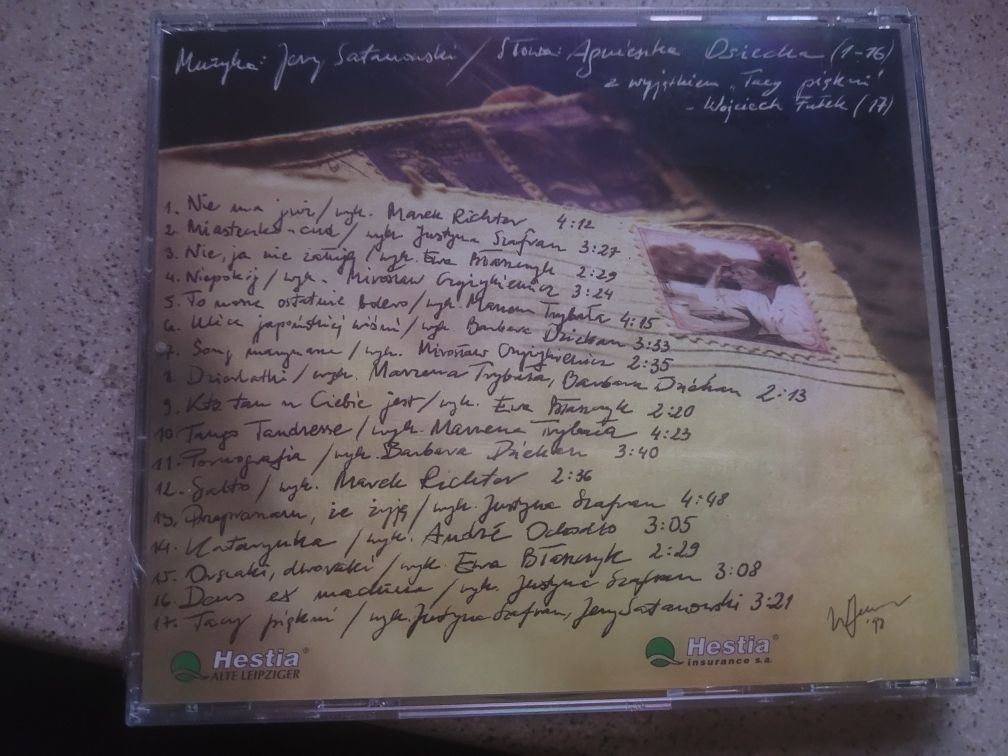 Muzyka: Jerzy Satanowski / Słowa: Agnieszka Osiecka (1-16)
z wyjątkiem „Tacy piękni”
- Wojciech Fułek (17)
1. Nie ma już / wyk. Marek Richter 4:12
2. Miasteczko-cud / wyk. Justyna Szafran 3:27
3. Nie, ja nie żałuję / wyk. Ewa Błaszczyk 2:29
4. Niepokój / wyk. Mirosław Czyżykiewicz 3:24
5. To może ostatnie bolero / wyk. Marzena Trybała 4:15
6. Ulica japońskiej wiśni / wyk. Barbara Dziekan 3:33
7. Song / wyk. Mirosław Czyżykiewicz 2:35
8. Działatki / wyk. Marzena Trybała, Barbara Dziekan 2:13
9. Kto tam u Ciebie jest / wyk. Ewa Błaszczyk 2:20
10. Tango Tandresse / wyk. Marzena Trybała 4:23
11. Pornografia / wyk. Barbara Dziekan 3:40
12. Salto / wyk. Marek Richter 2:36
13. Przepraszam, że żyję / wyk. Justyna Szafran 4:48
14. Katarynka / wyk. André Ochodlo 3:05
15. Orszaki, dworaki / wyk. Ewa Błaszczyk 2:29
16. Deus ex machina / wyk. Justyna Szafran 3:08
17. Tacy piękni / wyk. Justyna Szafran, Jerzy Satanowski 3:21
'97
Hestia®
ALTE LEIPZIGER
Hestia®
insurance s.a.